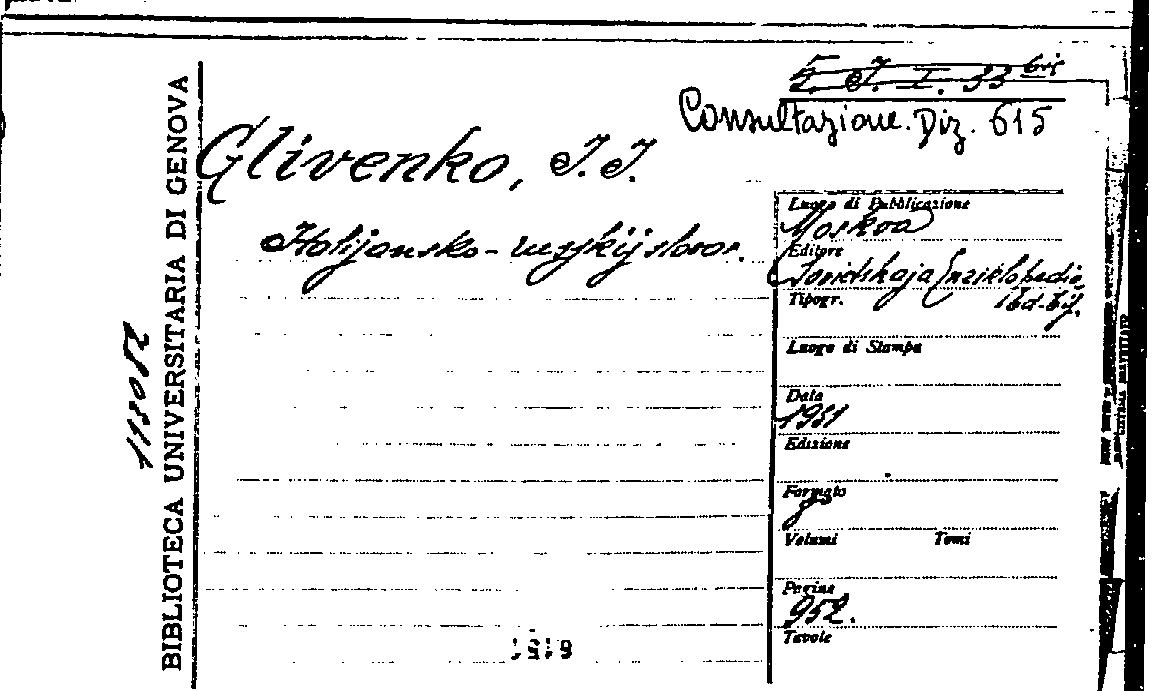 5. I. I. 33 bis
Consultazione. Diz. 615
Glivenko, I. I.
Italijansko-russkij slovar.
BIBLIOTECA UNIVERSITARIA DI GENOVA
113082
Luogo di Pubblicazione
Moskva
Editore
Sovietskaja Enziklopedia
Tipogr.
Luogo di Stampa
Data
1931
Edizione
Formato
8°
Volumi Tomi
Pagine
952.
Tavole